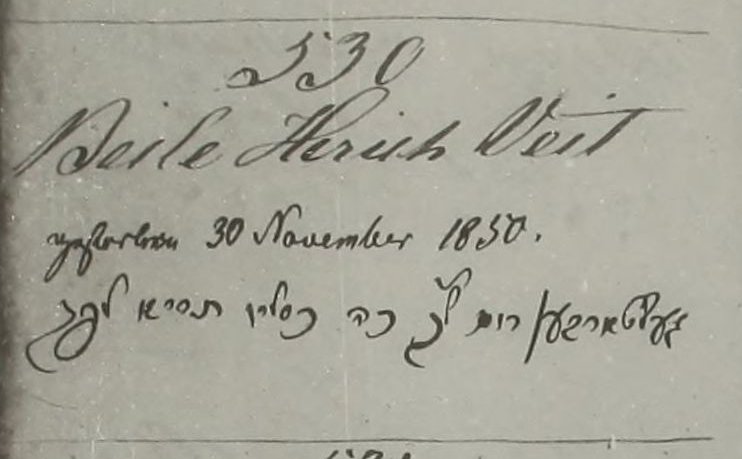 530
Beile Veit
gestorben 30 November 1850.
געשטארבען יום ש״ק כה כסליו תריא לפק